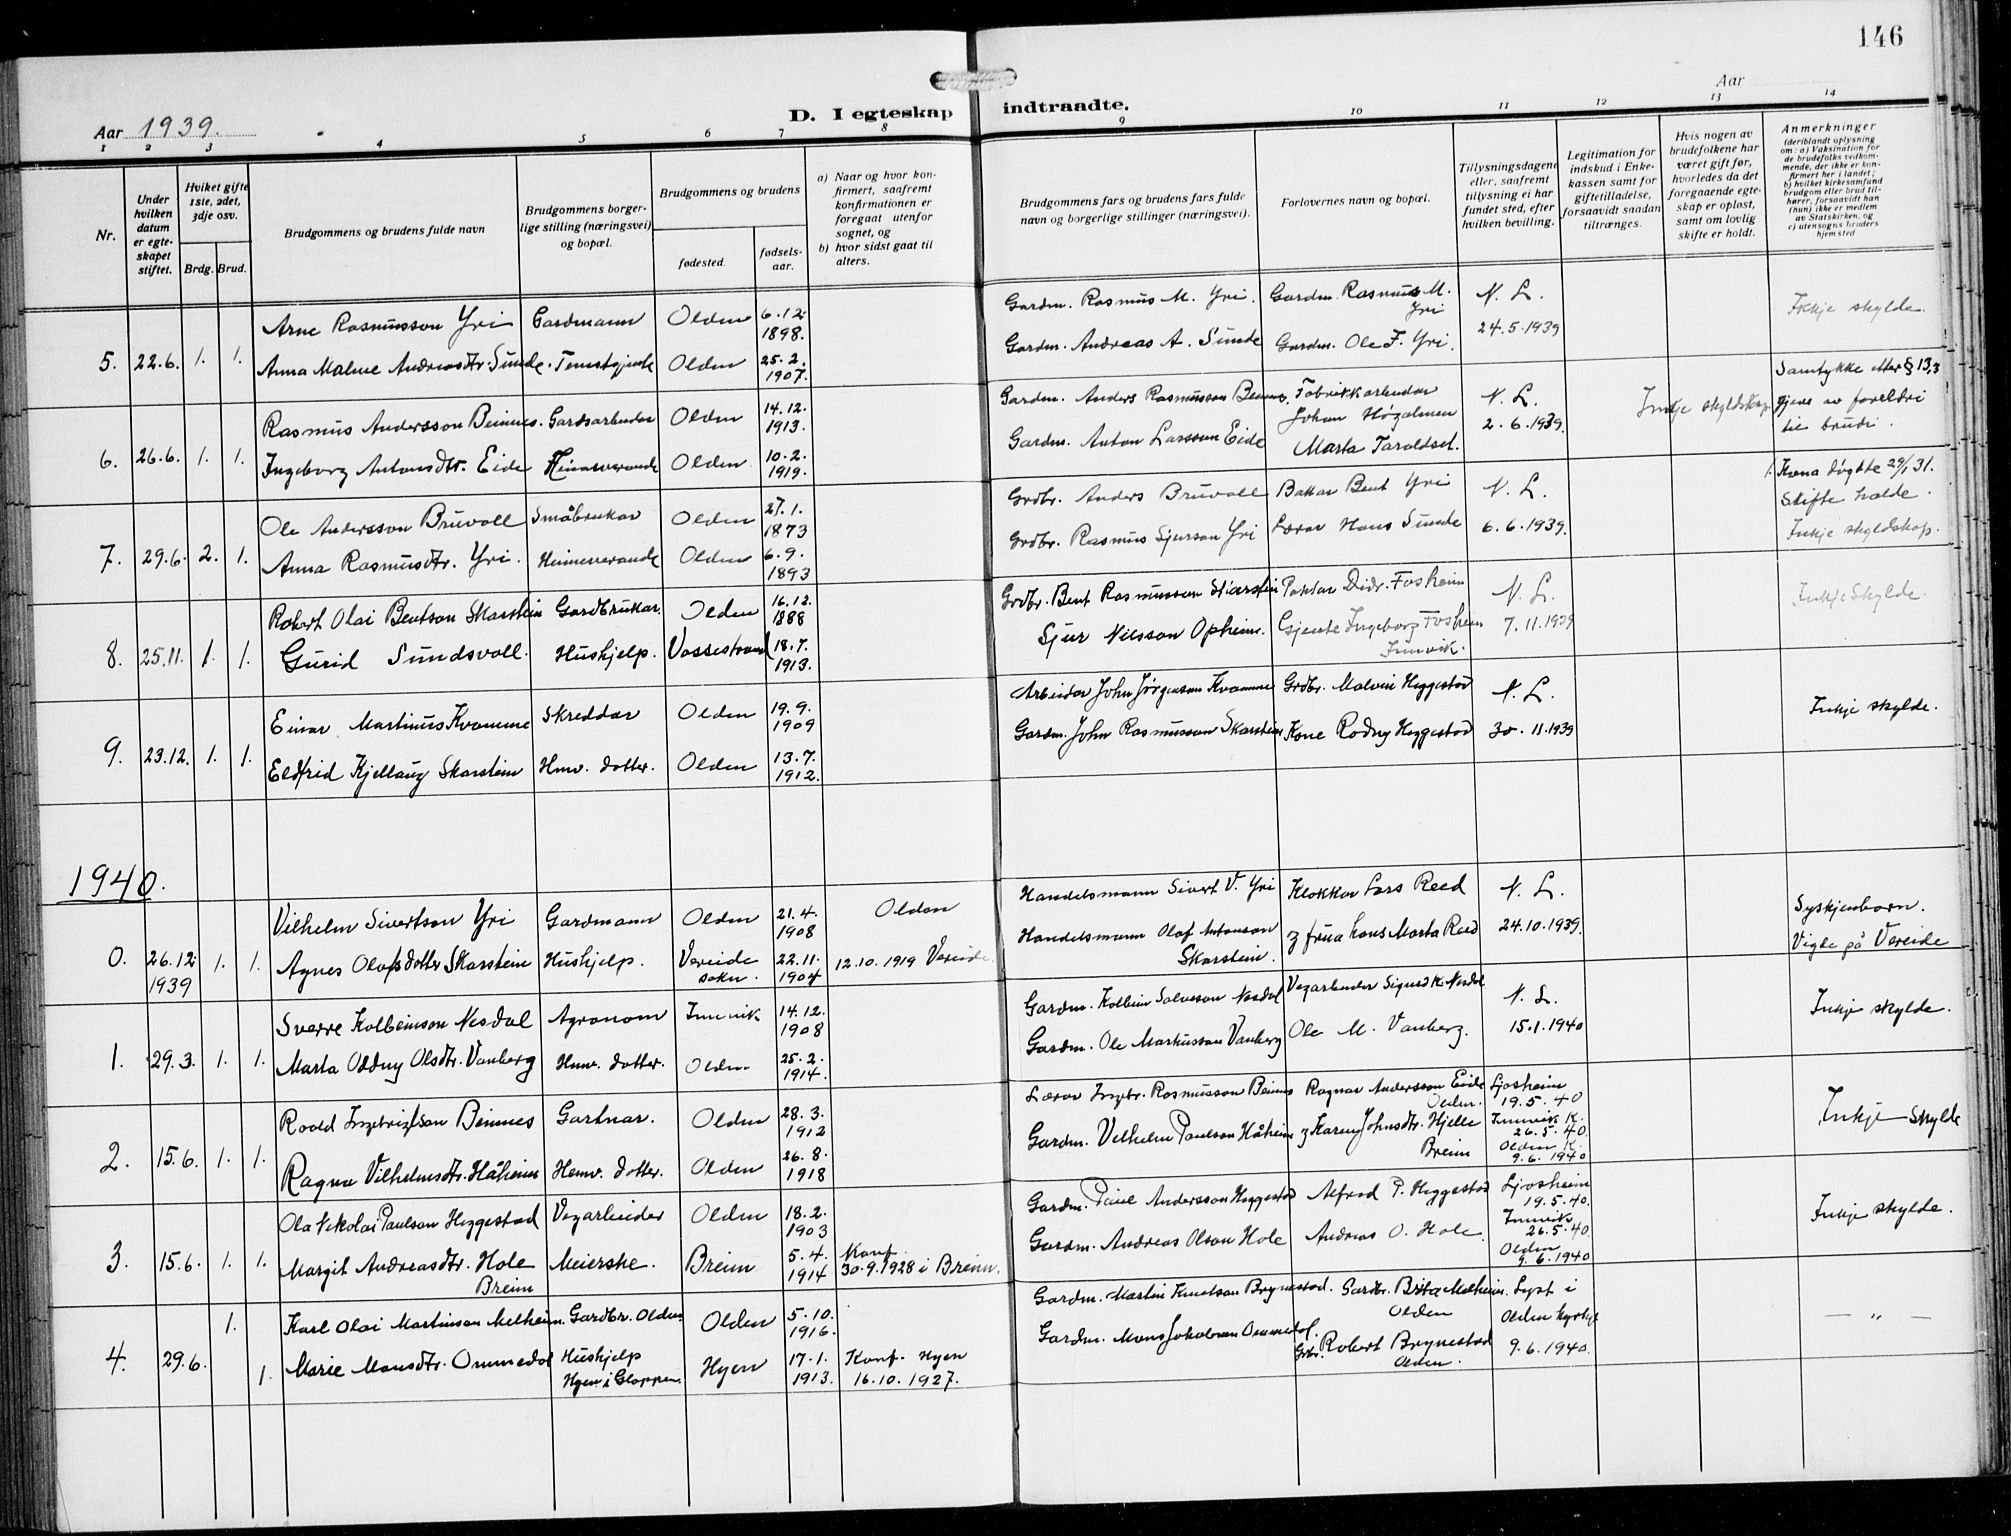 146
D. I egteskap indtraadte.
Aar 1939.
Aar
1 2 3 4 5 6 7 8 9 10 11 12 13 14
Nr.
Under hvilken datum er egteskapet stiftet.
Hviket gifte 1ste, 2det, 3dje osv.
Brdg. Brud.
Brudgommens og brudens fulde navn
Brudgommens borgerlige stilling (næringsvei) og bopæl.
Brudgommens og brudens
fødested.
fødselsaar.
a) Naar og hvor konfirmert, saafremt konfirmationen er foregaat utenfor sognet, og
b) hvor sidst gaat til alters.
Brudgommens fars og brudens fars fulde navn og borgerlige stillinger (næringsvei).
Forlovernes navn og bopæl.
Tillysningsdagene eller, saafremt tillysning ei har fundet sted, efter hvilken bevilling.
Legitimation for indskud i Enkekassen samt for giftetilladelse, forsaavidt saadan tiltrænges.
Hvis nogen av brudefolkene har været gift før, hvorledes da det foregaaende egteskap er opløst, samt om lovlig skifte er holdt.
Anmerkninger (deriblandt oplysning om: a) Vaksination for de brudefolks vedkommende, der ikke er konfirmert her i landet; b) hvilket kirkesamfund brudgom eller brud tilhører, forsaavidt han (hun) ikke er medlem av Statskirken, og c) utensogns bruders hjemsted
Arne Rasmusson Yri Gardmann Olden 6.12. 1898. Gardm. Rasmus M. Yri. Gardm. Rasmus M. Yri N. L. Ikkje skylde.
5. 22.6. 1. 1. Anna Malene Andreasdtr. Sunde. Tenestgjente Olden 25.2. 1907. Gardm. Andreas A. Sunde Gardm. Ole F. Yri. 24.5.1939
Rasmus Andersson Beinnes. Gardsarbeidar Olden 14.12. 1913. Gardm. Anders Rasmusson Beinnes. Fabrikkarbeidar Johan N. L. Inkje skyldskap. Samtykke etter § 13,3 gjeve av foreldri til brudi.
6. 26.6. 1. 1. Ingeborg Antonsdtr. Eide Heimeverande Olden 10.2. 1919. Gardm. Anton Larsson Eide Marta Taraldset. 2.6.1939.
Ole Andersson Bruvoll Småbrukar Olden 27.1. 1873 Grdbr. Anders Bruvoll Bakar Bent Yri N. L. 1. Kona døydde 29/1 31. Skifte halde.
7. 29.6. 2. 1. Anna Rasmusdtr. Yri. Heimeverande Olden 6.9. 1893 Grdbr. Rasmus Sjurson Yri Lærar Hans Sunde 6.6.1939. Inkje skyldskap.
Robert Olai Bentson Skarstein Gardbrukar. Olden 16.12. 1888 Grdbr. Bent Rasmusson Skarstein Doktor Didr. Fosheim N. L. Inkje Skylde.
8. 25.11. 1. 1. Gurid Sundsvoll. Hushjelp. Vossestrand 18.7. 1913. Sjur Nilsson Opheim. Gjente Ingeborg Fosheim Innvik. 7.11.1939
Einar Martinus Kvamme Skreddar Olden 19.9. 1909 Arbeidar John Jørgenson Kvamme Grdbr. Malvin Heggestad N. L. Inkje skylde.
9. 23.12. 1. 1. Eldfrid Kjellaug Skarstein Hmv. dotter. Olden 13.7. 1912. Gardm. John Rasmusson Skarstein Kone Rodny Heggestad 30.11.1939
1940.
Vilhelm Sivertson Yri Gardmann Olden 21.4. 1908 Olden Handelsmann Sivert V. Yri Klokkar Lars Reed N. L. Syskjenborn.
0. 26.12. 1939 1. 1. Agnes Olafsdotter Skarstein Hushjelp. Vereide sokn. 22.11. 1904 12.10.1919 Vereide. Handelsmann Olaf Antonson Skarstein. og frua hans Marta Reed 24.10.1939. Vigde på Vereide
Sverre Kolbeinson Nesdal Agronom Innvik 14.12. 1908 Gardm. Kolbein Salveson Nesdal Vegarbeider Sigurd K. Nesdal N. L. Inkje skylde.
1. 29.3. 1. 1. Marta Oddny Olsdtr. Vanberg Hmv. dotter. Olden 25.2. 1914. Gardm. Ole Markusson Vanberg Ole M. Vanberg. 15.1.1940
Roald Ingebrigtson Beinnes Gartnar. Olden 28.3. 1912 Lærar Ingbr. Rasmusson Beinnes Ragnar Andersson Eide Olden. Ljosheim 19.5.40 Inkje skylde
2. 15.6. 1. 1. Ragna Vilhelmsdtr. Håheim Hemv. dotter. Olden 26.8. 1918 Gardm. Vilhelm Paulson Håheim og Karen Johnsdtr. Hjelle Breim Innvik K. 26.5.40. Olden K. 9.6.1940
Ola Nikolai Paulson Heggestad Vegarbeider Olden 18.2. 1903 Gardm. Paul Andersson Heggestad Alfred P. Heggestad Ljosheim 19.5.40. Inkje skylde.
3. 15.6. 1. 1. Margit Andreasdtr. Hole Breim Meierske. Breim 5.4. 1914 Konf. 30.9.1928 i Breim. Gardm. Andreas Olson Hole Andreas O. Hole. Innvik 26.5.40. Olden 9.6.1940
1. Karl Olai Martinson Melheim. Gardbr. Olden Olden 5.10. 1916. Gardm. Martin Knutson Brynestad. Gardbr. Brita Melheim. Olden Lyst i Olden kyrkje — " —
4. 29.6. 1. Marie Monsdtr. Ommedal Hushjelp Hyen i Gloppen. Hyen 17.1. 1913. Konf. Hyen 16.10.1927. Gardm. Mons Jakobson Ommedal. Grbr. Robert Brynestad Olden. 9.6.1940.